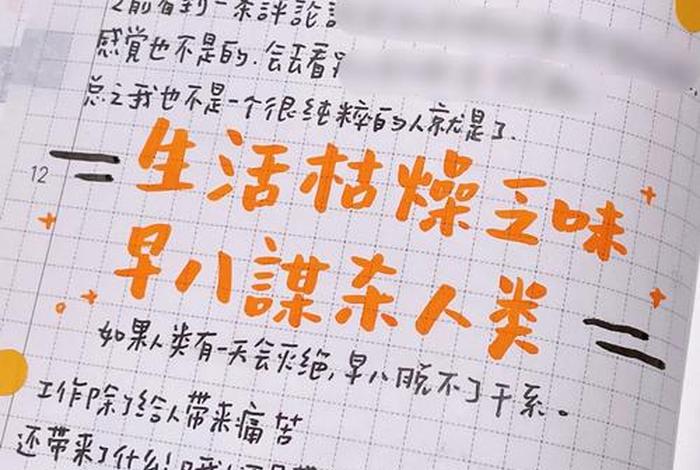 之前看到一条評論
感覺也不是的.会去看
总之我也不是一个很纯粹的人就是了.
12
生活枯燥乏味
早八謀杀人类
如果人类有一天会灭绝,早八脱不了干系。
工作除了给人带来痛苦
还带来了什么!